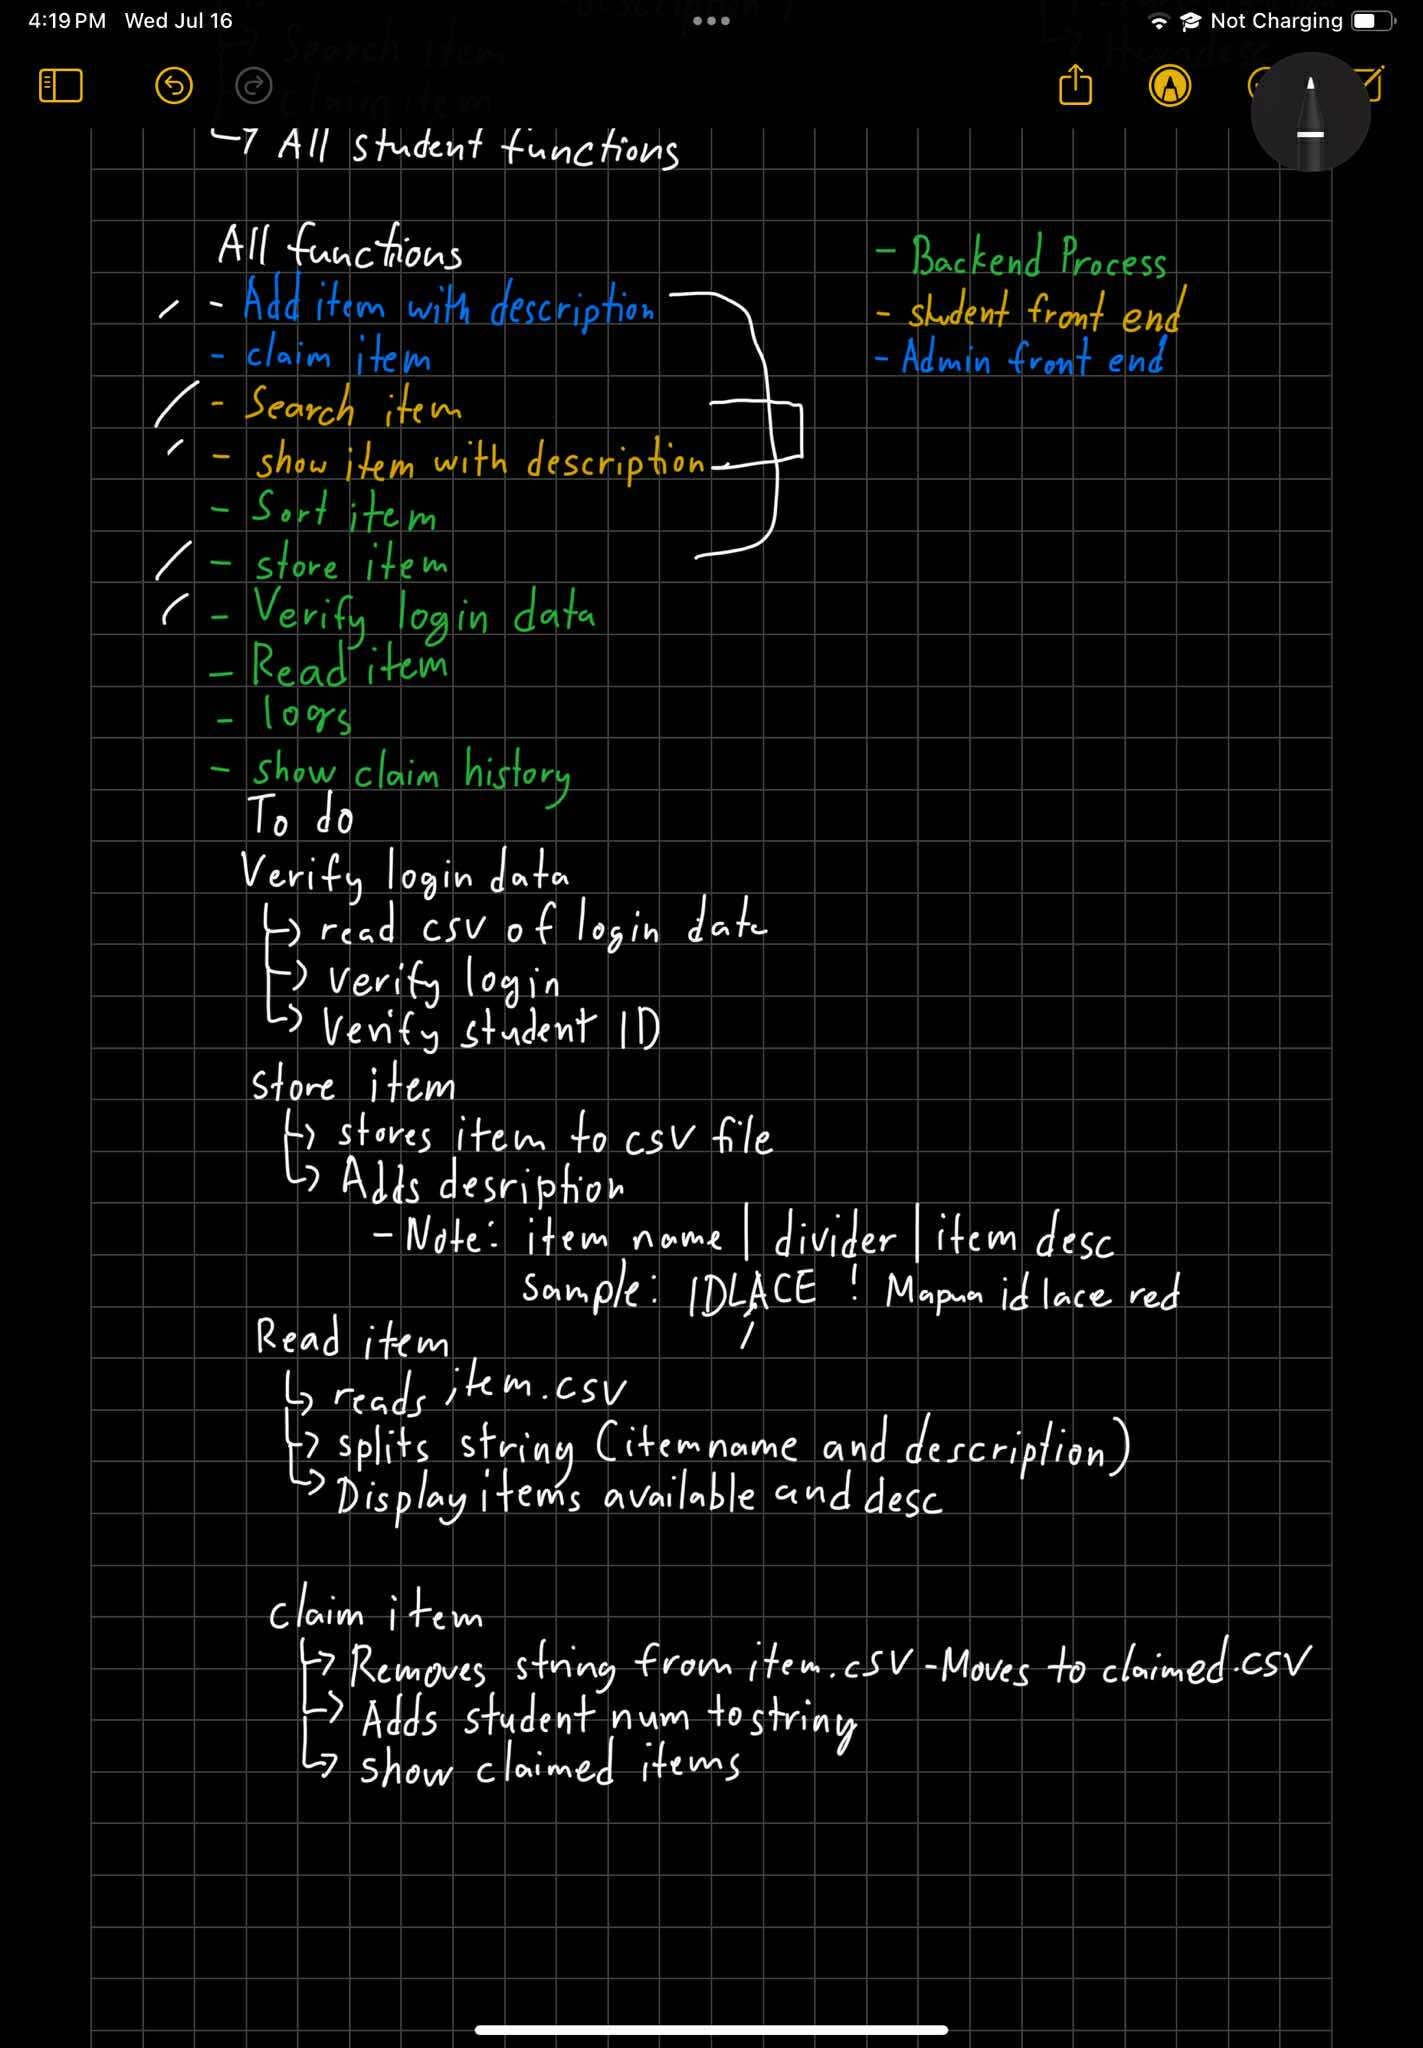 4:19 PM Wed Jul 16
Not Charging
Search item
claim item
↳ All student functions
All functions
- Add item with description
- claim item
- Search item
- show item with description
- Sort item
- store item
- Verify login data
- Read item
- logs
- show claim history
- Backend Process
- student front end
- Admin front end
To do
Verify login data
↳ read csv of login data
↳ verify login
↳ Verify student ID
store item
↳ stores item to csv file
↳ Adds desription
- Note: item name | divider | item desc
Sample: IDLACE ! Mapua id lace red
Read item
↳ reads item.csv
↳ splits string (itemname and description)
↳ Display items available and desc
claim item
↳ Removes string from item.csv - Moves to claimed.csv
↳ Adds student num to string
↳ show claimed items